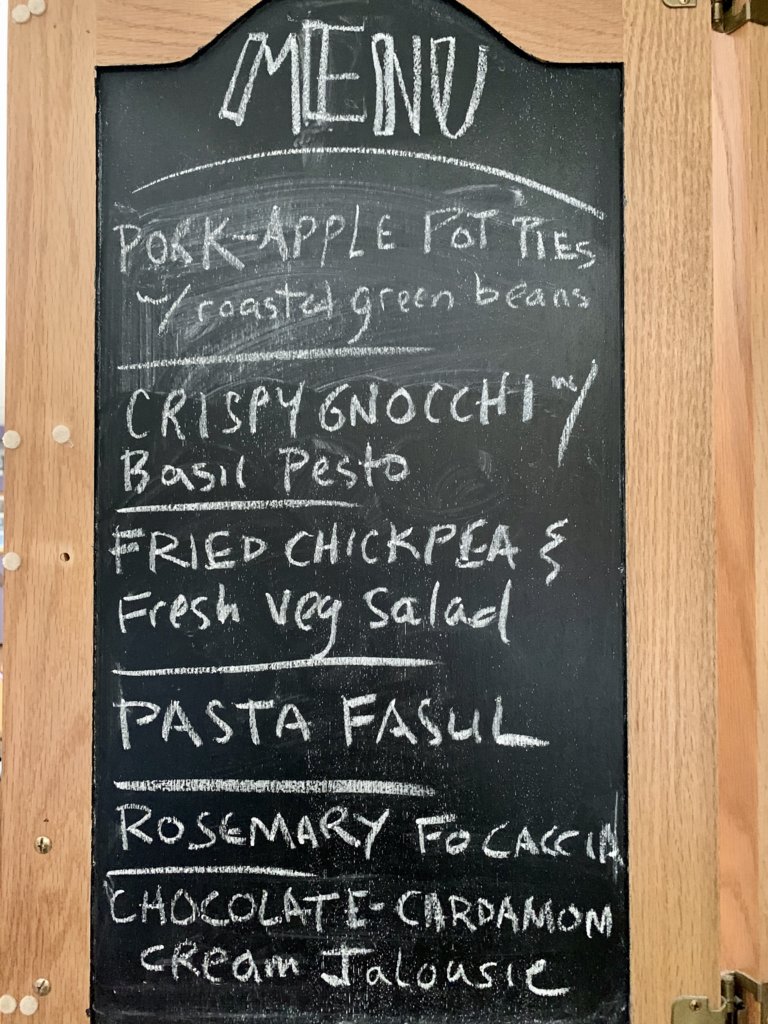 MENU
PORK-APPLE POT PIES
w/ roasted green beans
CRISPY GNOCCHI w/
Basil Pesto
FRIED CHICKPEA &
Fresh veg salad
PASTA FASUL
ROSEMARY FOCACCIA
CHOCOLATE-CARDAMOM
CReam Jalousie